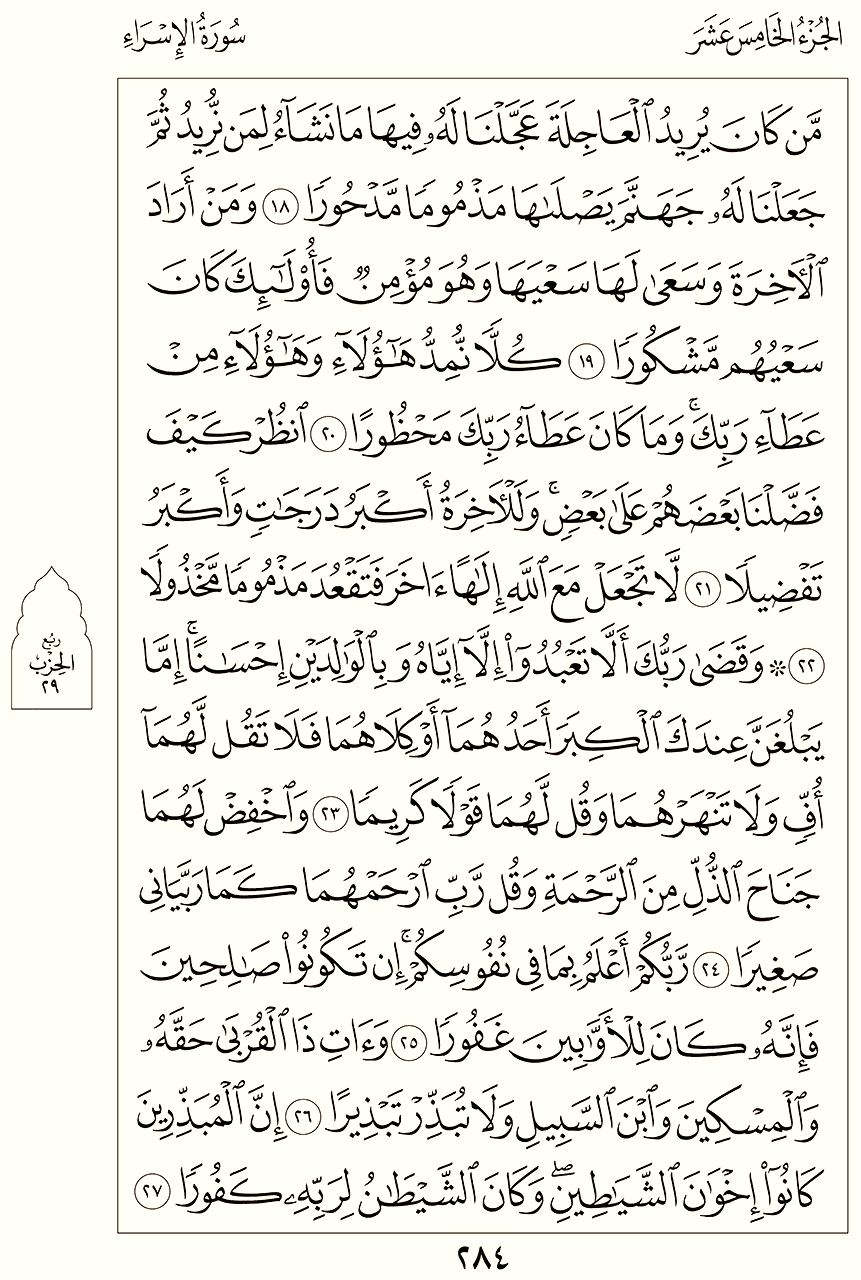 الجُزْءُ الخَامِسَ عَشَرَ
سُورَةُ الإِسْرَاءِ
مَّن كَانَ يُرِيدُ ٱلْعَاجِلَةَ عَجَّلْنَا لَهُۥ فِيهَا مَا نَشَآءُ لِمَن نُّرِيدُ ثُمَّ
جَعَلْنَا لَهُۥ جَهَنَّمَ يَصْلَىٰهَا مَذْمُومًا مَّدْحُورًا ١٨ وَمَنْ أَرَادَ
ٱلْأٓخِرَةَ وَسَعَىٰ لَهَا سَعْيَهَا وَهُوَ مُؤْمِنٌ فَأُو۟لَـٰٓئِكَ كَانَ
سَعْيُهُم مَّشْكُورًا ١٩ كُلًّا نُّمِدُّ هَـٰٓؤُلَآءِ وَهَـٰٓؤُلَآءِ مِنْ
عَطَآءِ رَبِّكَ ۚ وَمَا كَانَ عَطَآءُ رَبِّكَ مَحْظُورًا ٢٠ ٱنظُرْ كَيْفَ
فَضَّلْنَا بَعْضَهُمْ عَلَىٰ بَعْضٍ ۚ وَلَلْأٓخِرَةُ أَكْبَرُ دَرَجَـٰتٍ وَأَكْبَرُ
تَفْضِيلًا ٢١ لَّا تَجْعَلْ مَعَ ٱللَّهِ إِلَـٰهًا ءَاخَرَ فَتَقْعُدَ مَذْمُومًا مَّخْذُولًا
٢٢ ۞ وَقَضَىٰ رَبُّكَ أَلَّا تَعْبُدُوٓا۟ إِلَّآ إِيَّاهُ وَبِٱلْوَٰلِدَيْنِ إِحْسَـٰنًا ۚ إِمَّا
يَبْلُغَنَّ عِندَكَ ٱلْكِبَرَ أَحَدُهُمَآ أَوْ كِلَاهُمَا فَلَا تَقُل لَّهُمَآ
أُفٍّ وَلَا تَنْهَرْهُمَا وَقُل لَّهُمَا قَوْلًا كَرِيمًا ٢٣ وَٱخْفِضْ لَهُمَا
جَنَاحَ ٱلذُّلِّ مِنَ ٱلرَّحْمَةِ وَقُل رَّبِّ ٱرْحَمْهُمَا كَمَا رَبَّيَانِى
صَغِيرًا ٢٤ رَّبُّكُمْ أَعْلَمُ بِمَا فِى نُفُوسِكُمْ ۚ إِن تَكُونُوا۟ صَـٰلِحِينَ
فَإِنَّهُۥ كَانَ لِلْأَوَّٰبِينَ غَفُورًا ٢٥ وَءَاتِ ذَا ٱلْقُرْبَىٰ حَقَّهُۥ
وَٱلْمِسْكِينَ وَٱبْنَ ٱلسَّبِيلِ وَلَا تُبَذِّرْ تَبْذِيرًا ٢٦ إِنَّ ٱلْمُبَذِّرِينَ
كَانُوٓا۟ إِخْوَٰنَ ٱلشَّيَـٰطِينِ ۖ وَكَانَ ٱلشَّيْطَـٰنُ لِرَبِّهِۦ كَفُورًا ٢٧
رُبع
الحِزْب
٢٩
٢٨٤